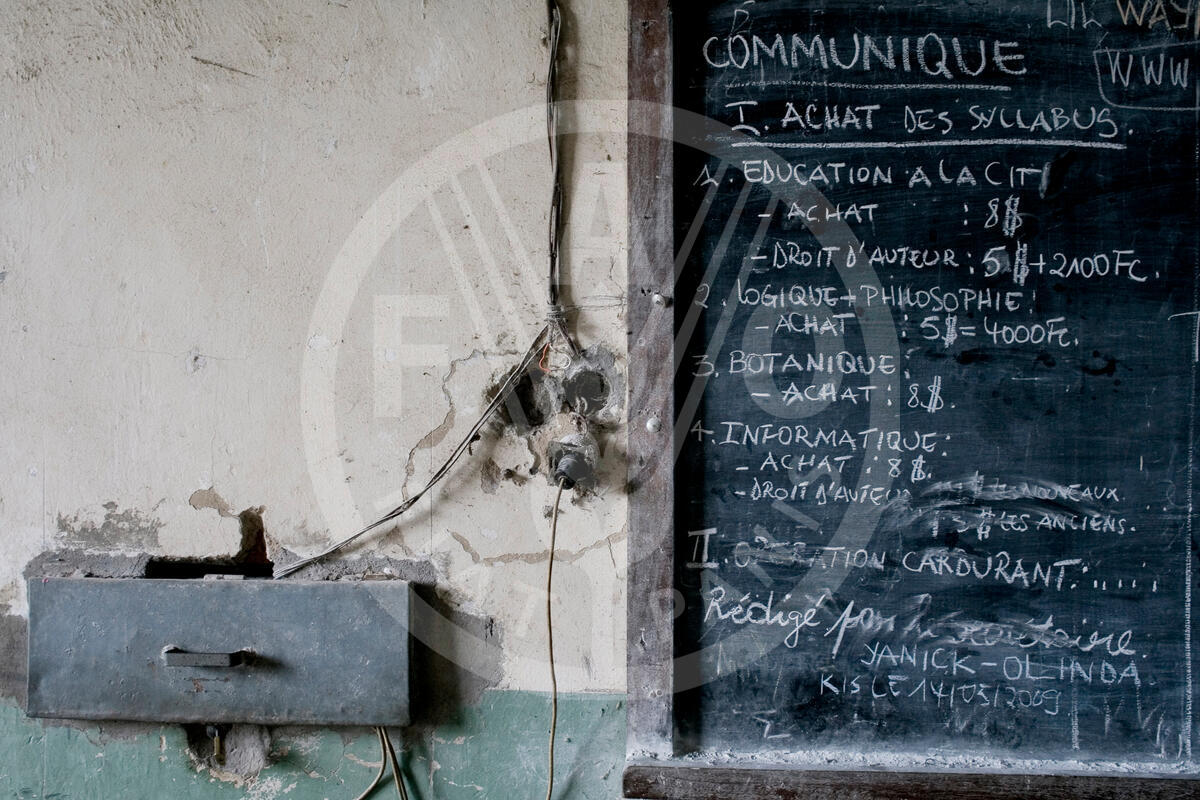 LIL WAY
COMMUNIQUE
WWW
I. ACHAT DES SYLLABUS.
1. EDUCATION A LA CIT
- ACHAT : 8$
- DROIT D'AUTEUR : 5$+2100FC.
2. LOGIQUE+PHILOSOPHIE!
- ACHAT : 5$=4000FC.
3. BOTANIQUE:
- ACHAT: 8$.
4. INFORMATIQUE:
- ACHAT : 8$.
- DROIT D'AUTEUR NOUVEAUX.
$ LES ANCIENS.
II. CARDURANT:.....
Rédigé par le
YANICK-OLINDA.
KIS LE 14/03/2009